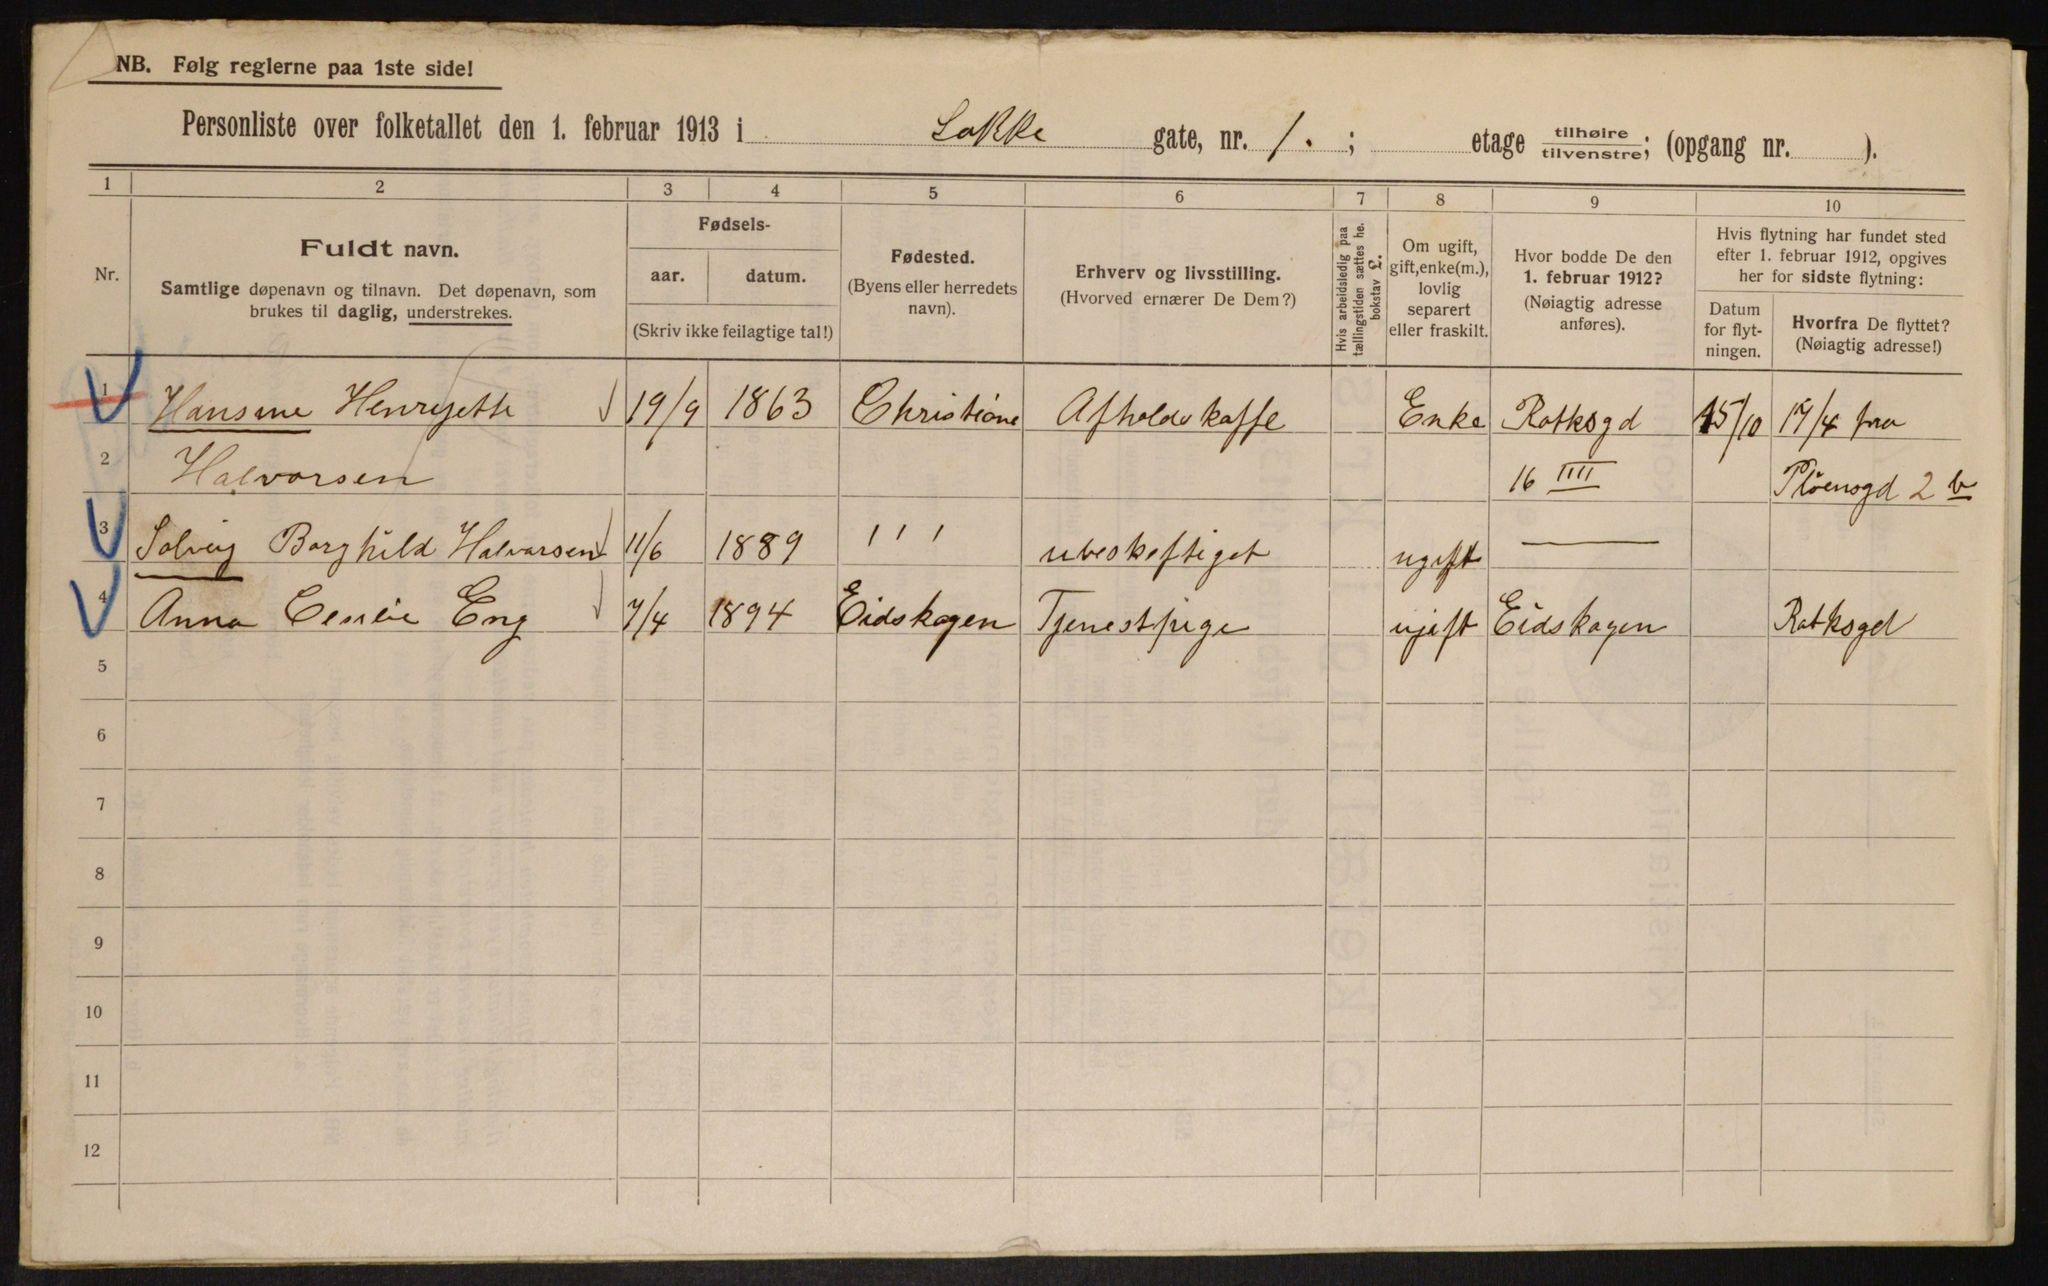 NB. Følg reglerne paa 1ste side!
Personliste over folketallet den 1. februar 1913 i Sokke gate, nr. 1. ; etage tilhøire tilvenstre; (opgang nr. ).
1 2 3 4 5 6 7 8 9 10
Nr.
Fuldt navn.
Samtlige døpenavn og tilnavn. Det døpenavn, som
brukes til daglig, understrekes.
Fødsels-
aar. datum.
(Skriv ikke feilagtige tal!)
Fødested.
(Byens eller herredets
navn).
Erhverv og livsstilling.
(Hvorved ernærer De Dem?)
Hvis arbeidsledig paa
tællingstiden sættes he.
bokstav £.
Om ugift,
gift, enke(m.),
lovlig
separert
eller fraskilt.
Hvor bodde De den
1. februar 1912?
(Nøiagtig adresse
anføres).
Hvis flytning har fundet sted
efter 1. februar 1912, opgives
her for sidste flytning:
Datum
for flyt-
ningen.
Hvorfra De flyttet?
(Nøiagtig adresse!)
1 Hansine Henryette 19/9 1863 Christiane Afholdskaffe Enke Ratksgd 15/10 17/4 fra
2 Halvorsen 16 IIII Pløensgd 2 b
3 Solveig Borghild Halvorsen 11/6 1889 ' ' ' ubeskeftiget ugift —
4 Anna Eng 7/4 1894 Eidskogen Tjenestpige ugift Eidskogen Ratksgd
5
6
7
8
9
10
11
12